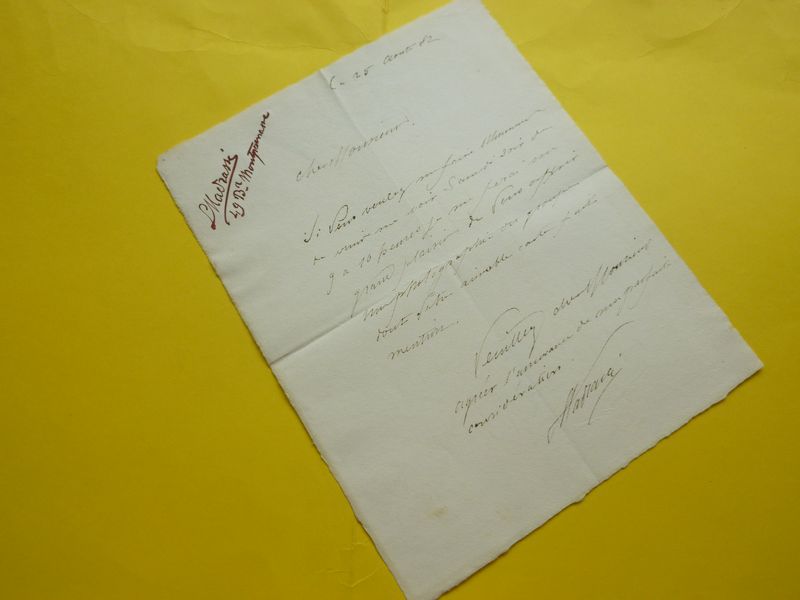 L Madrassi
49 Bd Montparnasse
Le 25 Aout 82
cher Monsieur.
Si Vous voulez me faire l'honneur
de venir me voir Samedi soir de
9 à 10 heures je me ferai un
grand plaisir de Vous offrir
une photographie du groupe
dont Votre aimable carte fait
mention.
Veuillez cher Monsieur
agréer l'assurance de ma parfaite
considération.
Madrassi